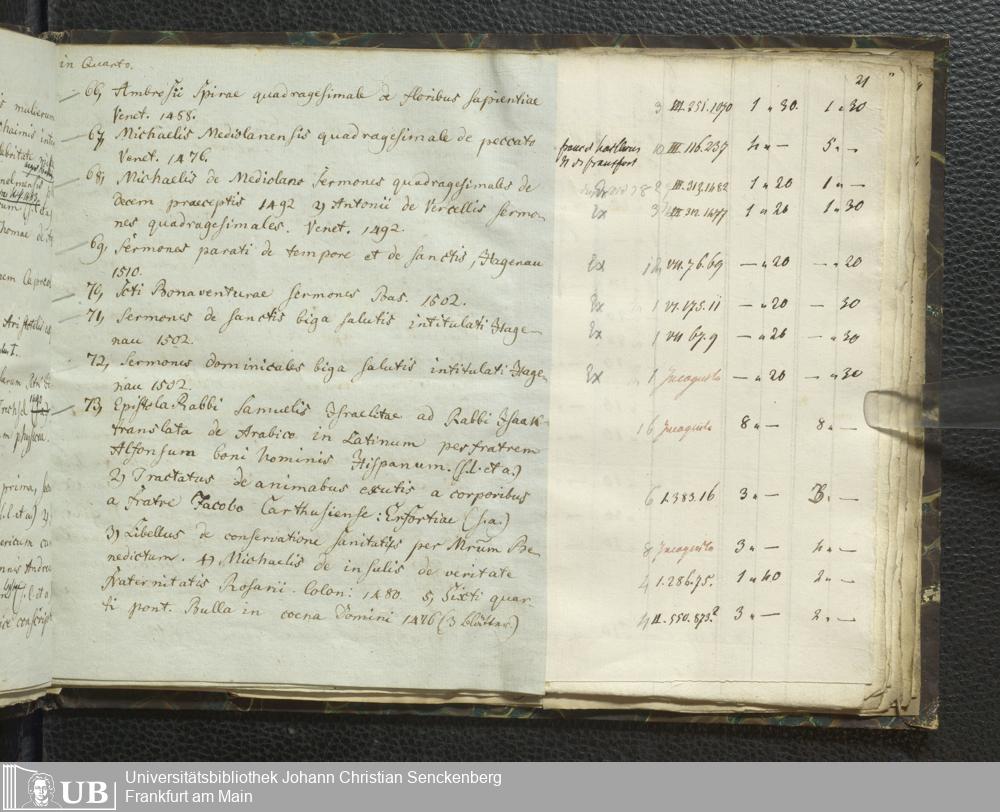 in Quarto.
21
66, Ambrosii Spirae quadragesimale de floribus sapientiae
Venet. 1488.
3 III.251.1070 1 " 30. 1 " 30
67, Michaelis Mediolanensis quadragesimale de peccato
Venet. 1476.
10 III.116.237 4 " — 5 " —
68, Michaelis de Mediolano Sermones quadragesimales de
decem praeceptis 1492 2) Antonii de Vercellis sermo-
nes quadragesimales. Venet. 1492.
2 III.313.1482 1 " 20 1 " —
Ex 3 III 312.1477 1 " 20 1 " 30
69, Sermones parati de tempore et de sanctis, Hagenau
1510.
Ex VII.76.69 — " 20 — " 20
70, Scti Bonaventurae Sermones Bas. 1502.
Ex 1 VI.175.11 — " 20 — 30
71, Sermones de sanctis biga salutis intitulati Hage-
nau 1502.
Ex 1 VII 67.9 — " 20 — " 30
72, Sermones dominicales biga salutis intitulati Hage
nau 1502.
Ex 1 Incognito — " 20 — " 30
73, Epistola Rabbi Samuelis Israelitae ad Rabbi Isaak
translata de Arabico in Latinum per fratrem
Alfonsum boni hominis Hispanum. (s.l. et a.)
16 Incognito 8 " — 8 " —
2) Tractatus de animabus exutis a corporibus
a fratre Jacobo Carthusiense: Erfortiae (s.a.)
6 I.383.16 3 " — 3 " —
3) Libellus de conservatione sanitatis per Mrum Be-
nedictum. 4) Michaelis de insulis de veritate
8 Incognito 3 " — 4 " —
fraternitatis Rosarii. Colon: 1480. 5) Sixti quar-
4 I.286.75. 1 " 40 2 " —
ti pont. Bulla in coena Domini 1476 (3 blätter)
4 II.550.873. 3 " — 2 " —
UB
Universitätsbibliothek Johann Christian Senckenberg
Frankfurt am Main